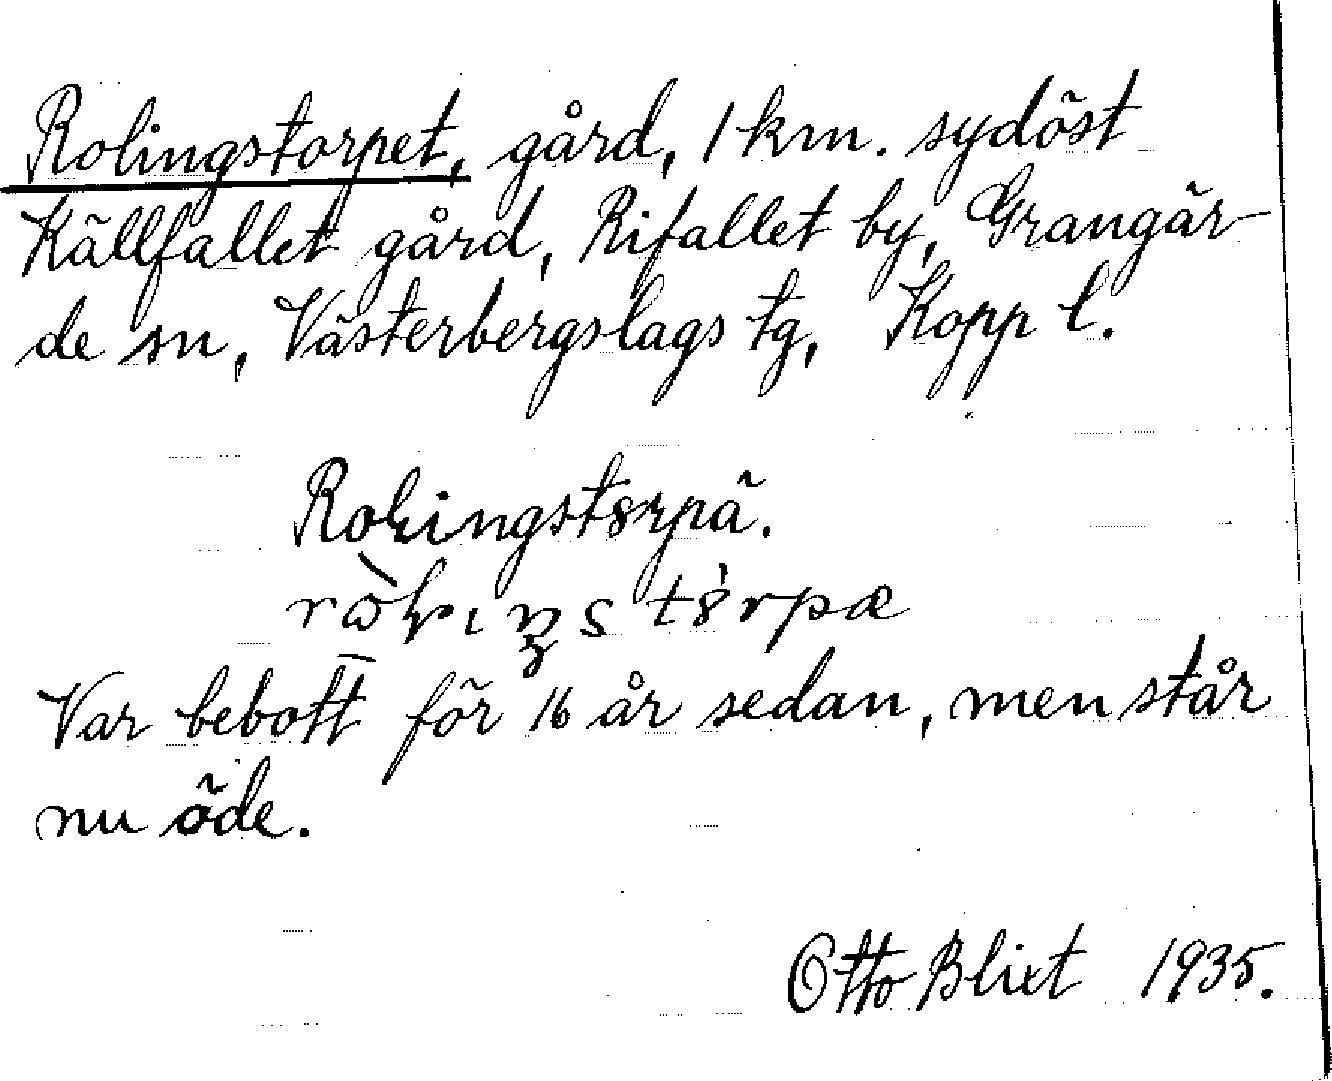 Rolingstorpet, gård, 1 km. sydöst
Källfallet gård, Rifallet by, Grangär-
de sn, Västerbergslags tg, Kopp l.
Roɽingst8rpä.
Var bebott för 16 år sedan, men står
nu öde.
Otto Blixt 1935.